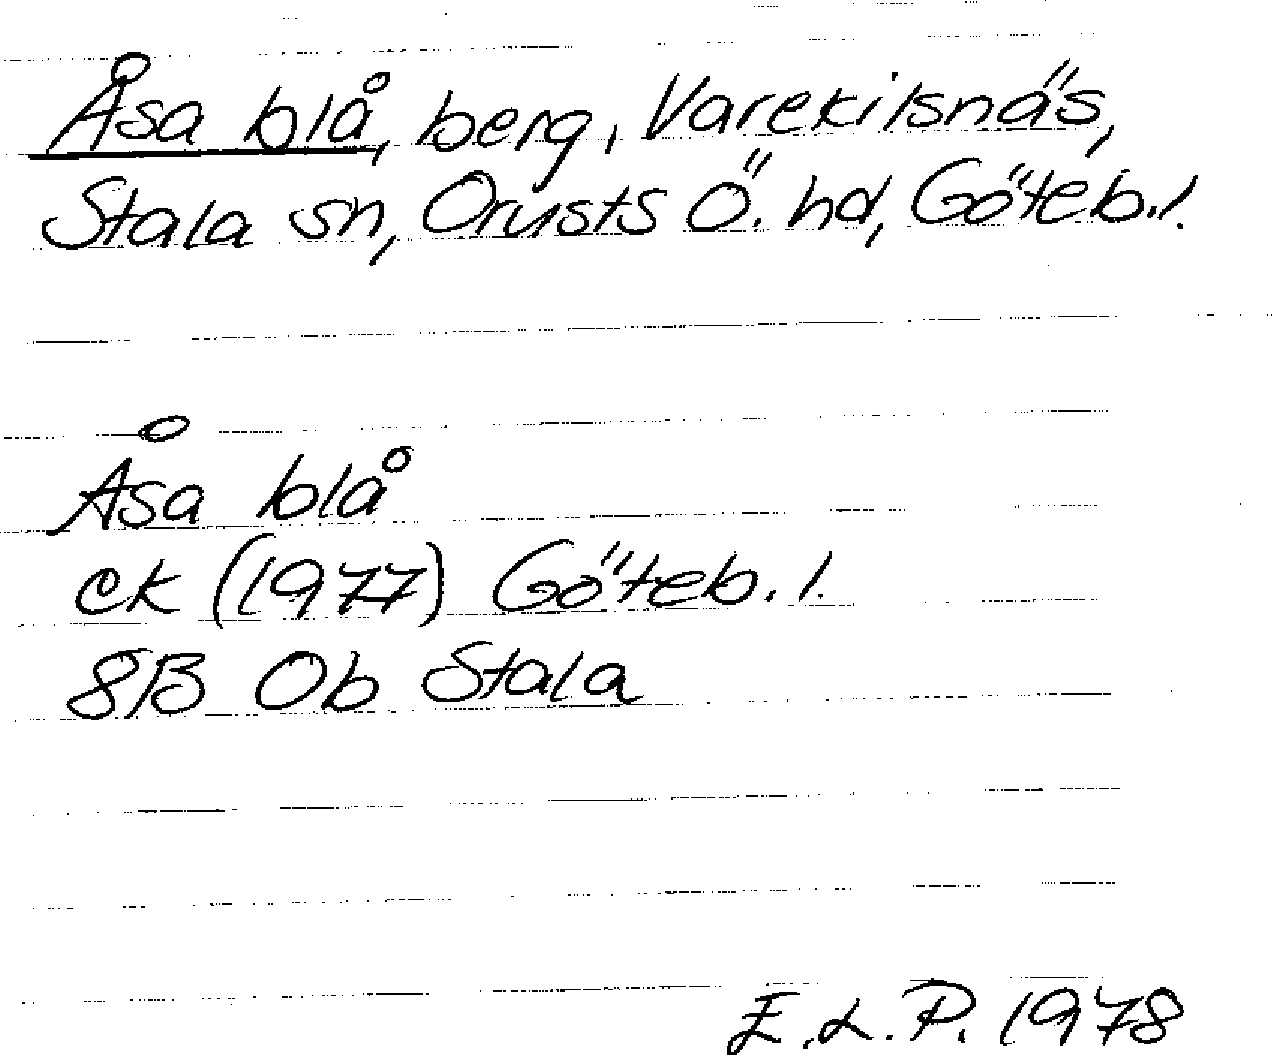 Åsa blå, berg, Varekilsnäs,
Stala sn, Orusts Ö. hd, Göteb.l.
Åsa blå
ek (1977) Göteb. l.
8B Ob Stala
E.L.P. 1978